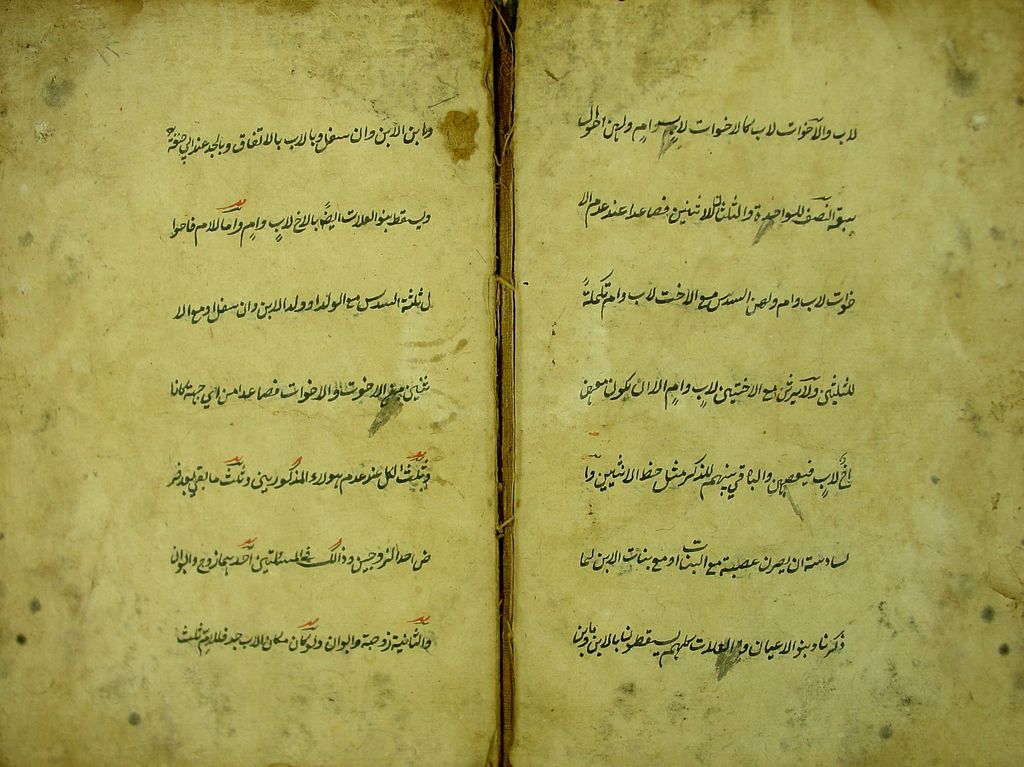 لاب والاخوات لاب كالاخوات لاب وام ولهن احوال
سبعة النصف للواحدة والثلثان للاثنتين فصاعدا عند عدم الا
خوات لاب وام ولهن السدس مع الاخت لاب وام تكملة
للثلثين ولا يرثن مع الاختين لاب وام الا ان يكون معهن
اخ لاب فيعصبهن والباقي بينهم للذكر مثل حظ الانثيين وا
لسادسة ان يصرن عصبة مع البنات او مع بنات الابن لما
ذكرنا وبنو الاعيان و العلات كلهم يسقطون بالابن
وابن الابن وان سفل وبالاب بالاتفاق وبالجد عند ابي حنيفة
ويسقط بنو العلات ايضا بالاخ لاب وام واما للام فاحوا
ل ثلثة السدس مع الولد او ولد الابن وان سفل او مع الا
ثنين من الاخوة والاخوات فصاعدا من اي جهة كانا
وثلث الكل عند عدم هولاء المذكورين وثلث ما بقي بعد فر
ض احد الزوجين وذالك في المسئلتين احدهما زوج وابوان
والثانية زوجة وابوان ولو كان مكان الاب جد فللام ثلث